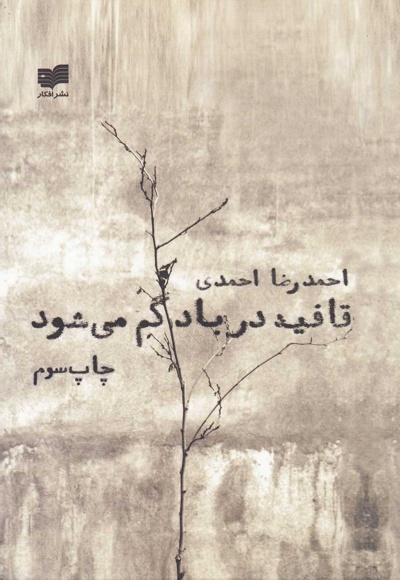 نشر افکار
احمدرضا احمدی
قافیه در باد گم می‌شود
چاپ سوم